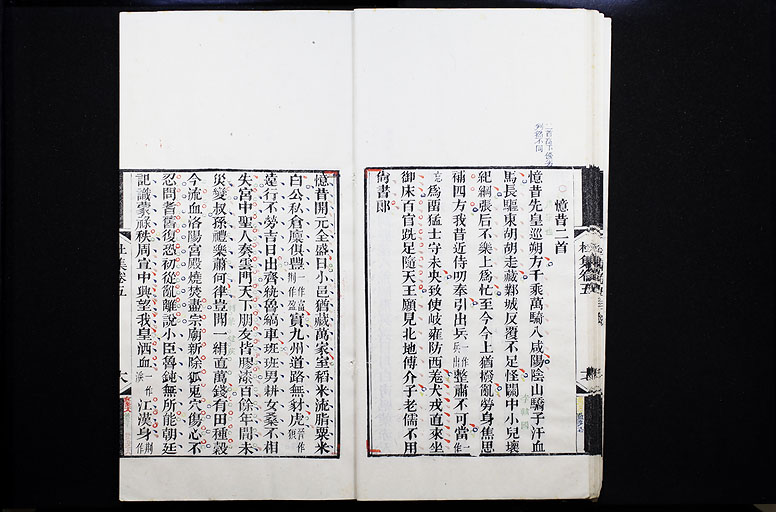 憶昔二首
憶昔先皇巡朔方千乘萬騎入咸陽陰山驕子汗血
馬長驅東胡胡走藏鄴城反覆不足怪關中小兒壞
紀綱張后不樂上為忙至今今上猶撥亂勞身焦思
補四方我昔近侍叨奉引出兵整肅不可當
為留猛士守未央致使岐雍防西羌犬戎直來坐
御床百官跣足隨天王願見北地傅介子老儒不用
尚書郎
憶昔開元全盛日小邑猶藏萬家室稻米流脂粟米
白公私倉廩俱豐實九州道路無豺虎
遠行不勞吉日出齊紈魯縞車班班男耕女桑不相
失宮中聖人奏雲門天下朋友皆膠漆百餘年間未
災變叔孫禮樂蕭何律豈聞一絹直萬錢有田種穀
今流血洛陽宮殿燒焚盡宗廟新除狐兔穴傷心不
忍問耆舊復恐初從亂離說小臣魯鈍無所能朝廷
記識蒙祿秩周宣中興望我皇洒血江漢身
杜集卷五